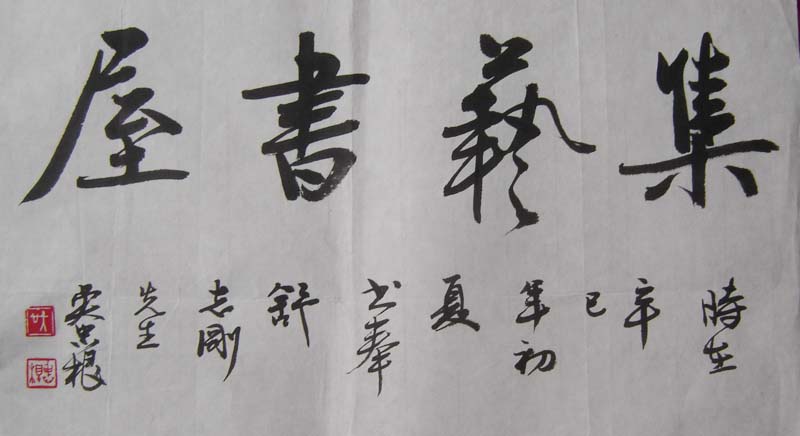 集藝書屋
時在辛巳年初夏书奉舒志剛先生
根